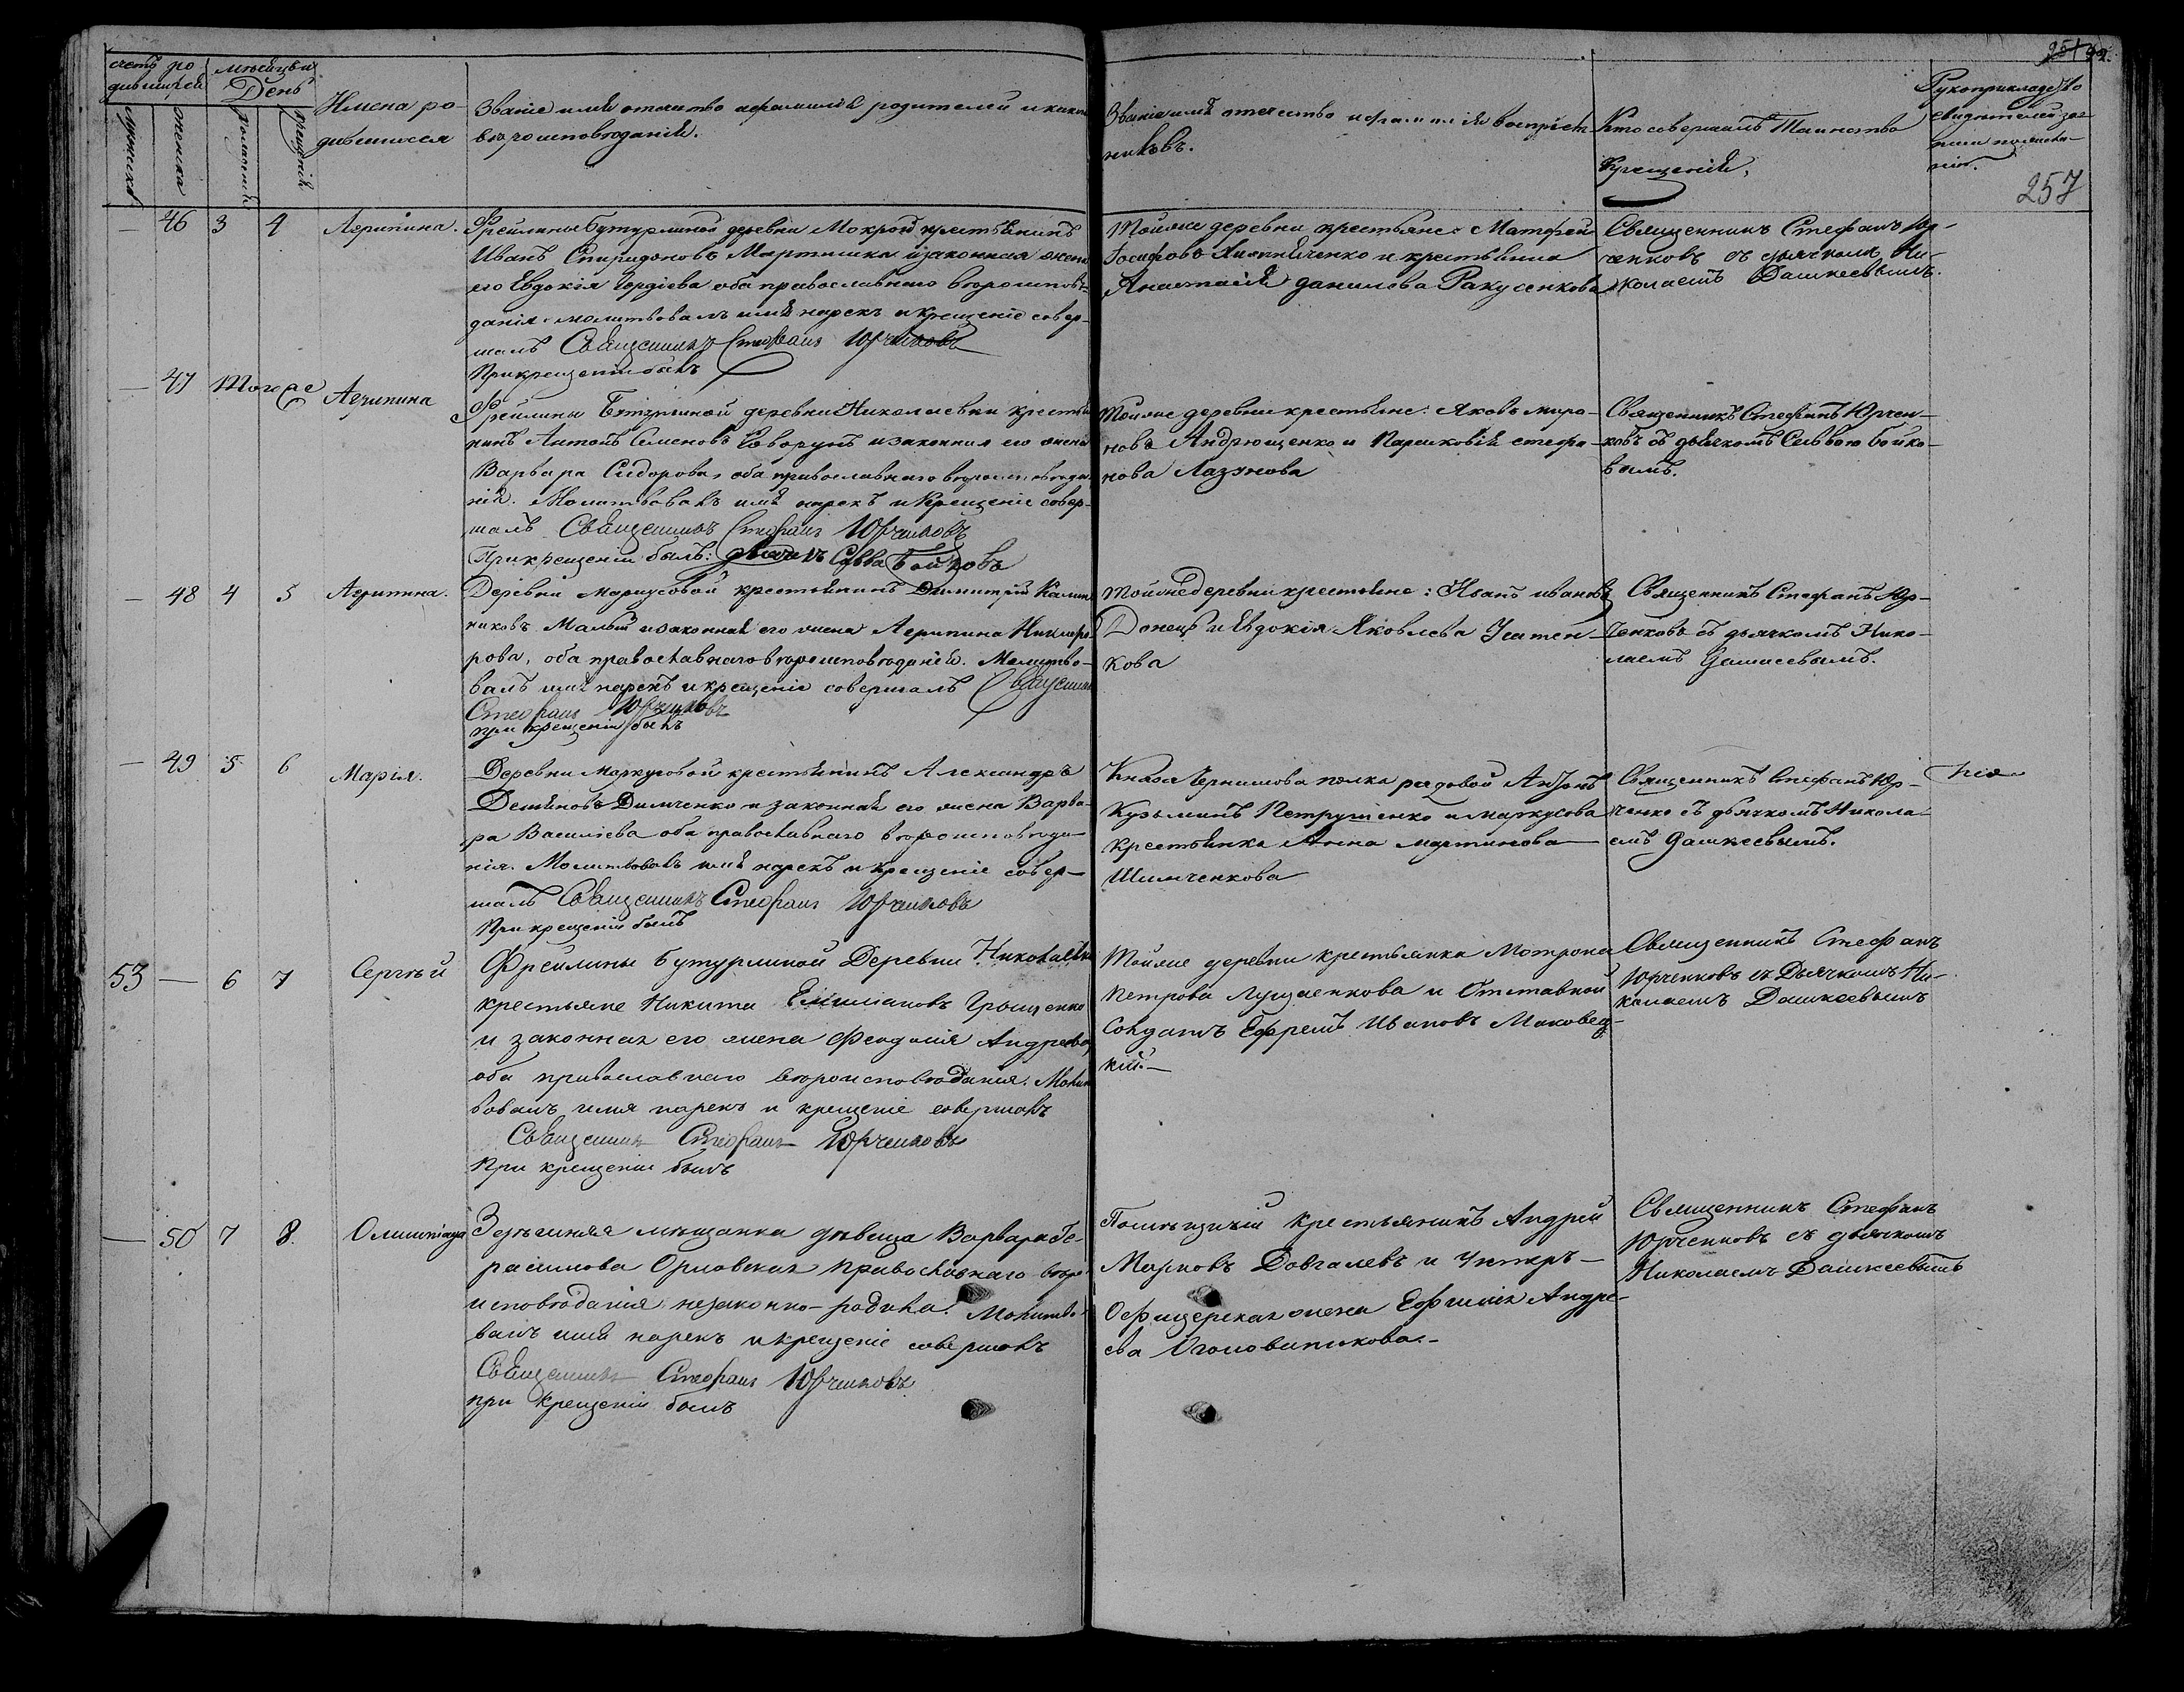 счетъ ро
дившихся
мѣсяцъ и
День
мужеска
женска
рожденія
крещенія
Имена ро-
дившихся
Званіе имя отчество и фамилія родителей и какого
вѣроисповѣданія.
Званіе имя отечество и фамилія воспріем-
никовъ.
Кто совершалъ Таинство
Крещенія.
Рукоприкладство
свидѣтелей за-
писи по жела-
нію.
257
— 46 3 4 Агрипина.
Фрейлины Бутурлиной деревни Мокрой крестьянинъ
Иванъ Спиридоновъ Мартишка и законная жена
его Евдокія Гордіева оба православнаго вѣроисповѣ-
данія. молитвовалъ имя нарекъ и крещеніе совер-
шалъ Священникъ Стефанъ Юрченковъ
При крещеніи былъ
Тойже деревни крестьяне: Матфей
Іосифовъ и крестьянка
Анастасія данилова Ракусенкова
Священникъ Стефанъ Юр-
ченковъ съ дьячкомъ Ни-
колаемъ Дашкеевымъ.
— 47 Тогоже Агрипина
Фрейлины Бутурлиной деревни Николаевки крестья
нинъ Антонъ Семеновъ Говорунъ и законная его жена
Варвара Сидорова, оба православнаго вѣроисповѣда
нія. Молитвовалъ имя нарекъ и Крещеніе совер-
шалъ Священникъ Стефанъ Юрченковъ
При крещеніи былъ: дьячекъ Савва Бойковъ
Тойже деревни крестьяне: Яковъ миро-
новъ Андрющенко и Параскевія стефа-
нова Лазунова
Священникъ Стефанъ Юрчен-
ковъ съ дьячкомъ Саввою Бойко-
вымъ.
— 48 4 5 Агрипина.
Деревни Маркусовой крестьянинъ Димитрій Калин
никовъ Малый и законная его жена Агрипина Никифо
рова, оба православнаго вѣроисповѣданія. Молитво-
валъ имя нарекъ и крещеніе совершалъ Священникъ
Стефанъ Юрченковъ
при крещеніи былъ
Тойже деревни крестьяне: Иванъ ивановъ
Донецъ и Евдокія Яковлева Усатен-
кова
Священникъ Стефанъ Юр-
ченковъ съ дьячкомъ Нико-
лаемъ Дашкеевымъ.
— 49 5 6 Марія.
Деревни Маркусовой крестьянинъ Александръ
Демяновъ Димченко и законная его жена Варва-
ра Василіева оба православнаго вѣроисповѣда-
нія. Молитвовалъ имя нарекъ и крещеніе совер-
шалъ Священникъ Стефанъ Юрченковъ
При крещеніи былъ
Князя Чернишова полка рядовой Антонъ
Кузьминъ Петрушенко и маркусова
крестьянка Анна мартинова
Шимченкова
Священникъ Стефанъ Юр-
ченко съ дьячкомъ Никола-
емъ Дашкеевымъ.
53 — 6 7 Сергѣй
Фрейлины Бутурлиной Деревни Николаевки
крестьяне Никита Емилиановъ Грошенко
и законная его жена Феодосія Андреева
оба православнаго вѣроисповѣданія. Молит
вовалъ имя нарекъ и крещеніе совершалъ
Священникъ Стефанъ Юрченковъ
При крещеніи былъ
Тойже деревни крестьянка Мотрона
Петрова Лущаенкова и Отставной
Солдатъ Ефремъ Ивановъ Маковец-
кій.—
Священникъ Стефанъ
Юрченковъ съ Дьячкомъ Ни-
колаемъ Дашкеевымъ
— 50 7 8 Олимпіада
Здѣшняя мѣщанка дѣвица Варвара Ге-
расимова Орловская православнаго вѣро
исповѣданія незаконно-родила. Молитво-
валъ имя нарекъ и крещеніе совершалъ
Священникъ Стефанъ Юрченковъ
при крещеніи былъ
Помѣщичій крестьянинъ Андрей
Марковъ Довгалевъ и Унтеръ-
Офицерская жена Ефимія Андре-
ева Уголовишкова.-
Священникъ Стефанъ
Юрченковъ съ дьячкомъ
Николаемъ Дашкеевымъ